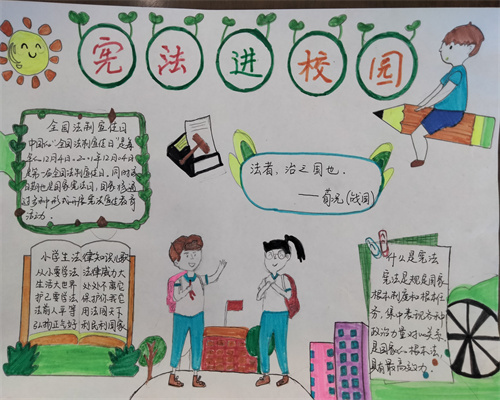 宪法进校园
全国法制宣传日
中国的“全国法制宣传日”是每
年的12月4日,2001年12月04日
是第一个全国法制宣传日,同时
也是国家宪法日,国家
多种形式开展宪法宣传教育
活动。
法者,治之国也.
——荀况(战国)
小学生法律知识儿歌
从小要学法 法律威力大
生活大世界 处处不离它
护己要学法 保护你我它
法前人平等 用法闯天下
弘扬正气好 利民利国家
什么是宪法
宪法是规定国家
根本制度和根本任
务,集中表现各种
政治力量对比关系
是国家的根本法,
具有最高效力。